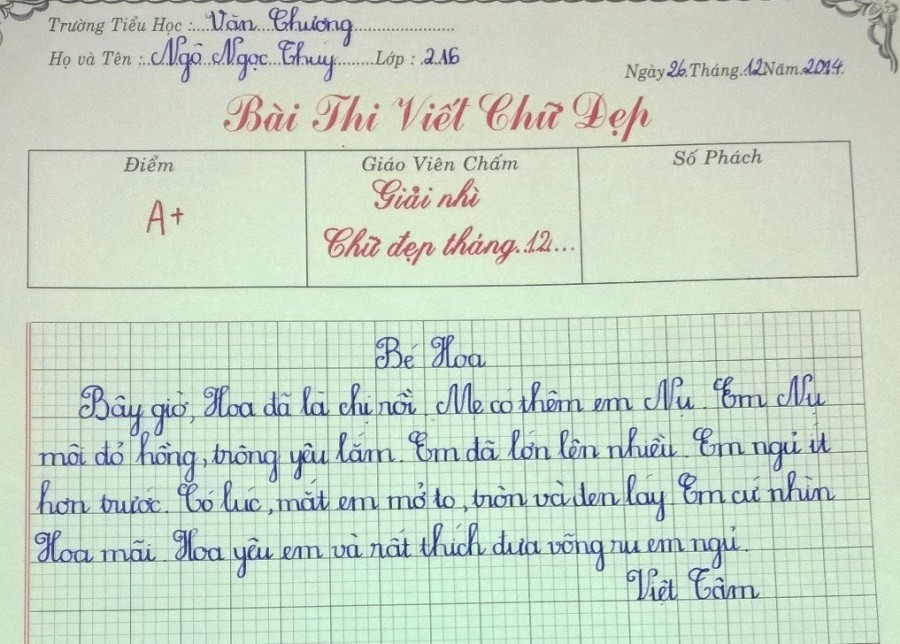 Trường Tiểu Học :....Văn Chương....................
Họ và Tên :..Ngô Ngọc Thuý.......Lớp : .2A6
Ngày 26.Tháng.12Năm.2014.
Bài Thi Viết Chữ Đẹp
Điểm
Giáo Viên Chấm
Số Phách
A+
Giải nhì
Chữ đẹp tháng..12...
Bé Hoa
Bây giờ, Hoa đã là chị rồi. Mẹ có thêm em Nụ. Em Nụ
môi đỏ hồng, trông yêu lắm. Em đã lớn lên nhiều. Em ngủ ít
hơn trước. Có lúc, mắt em mở to, tròn và đen láy. Em cứ nhìn
Hoa mãi. Hoa yêu em và rất thích đưa võng ru em ngủ.
Việt Tâm